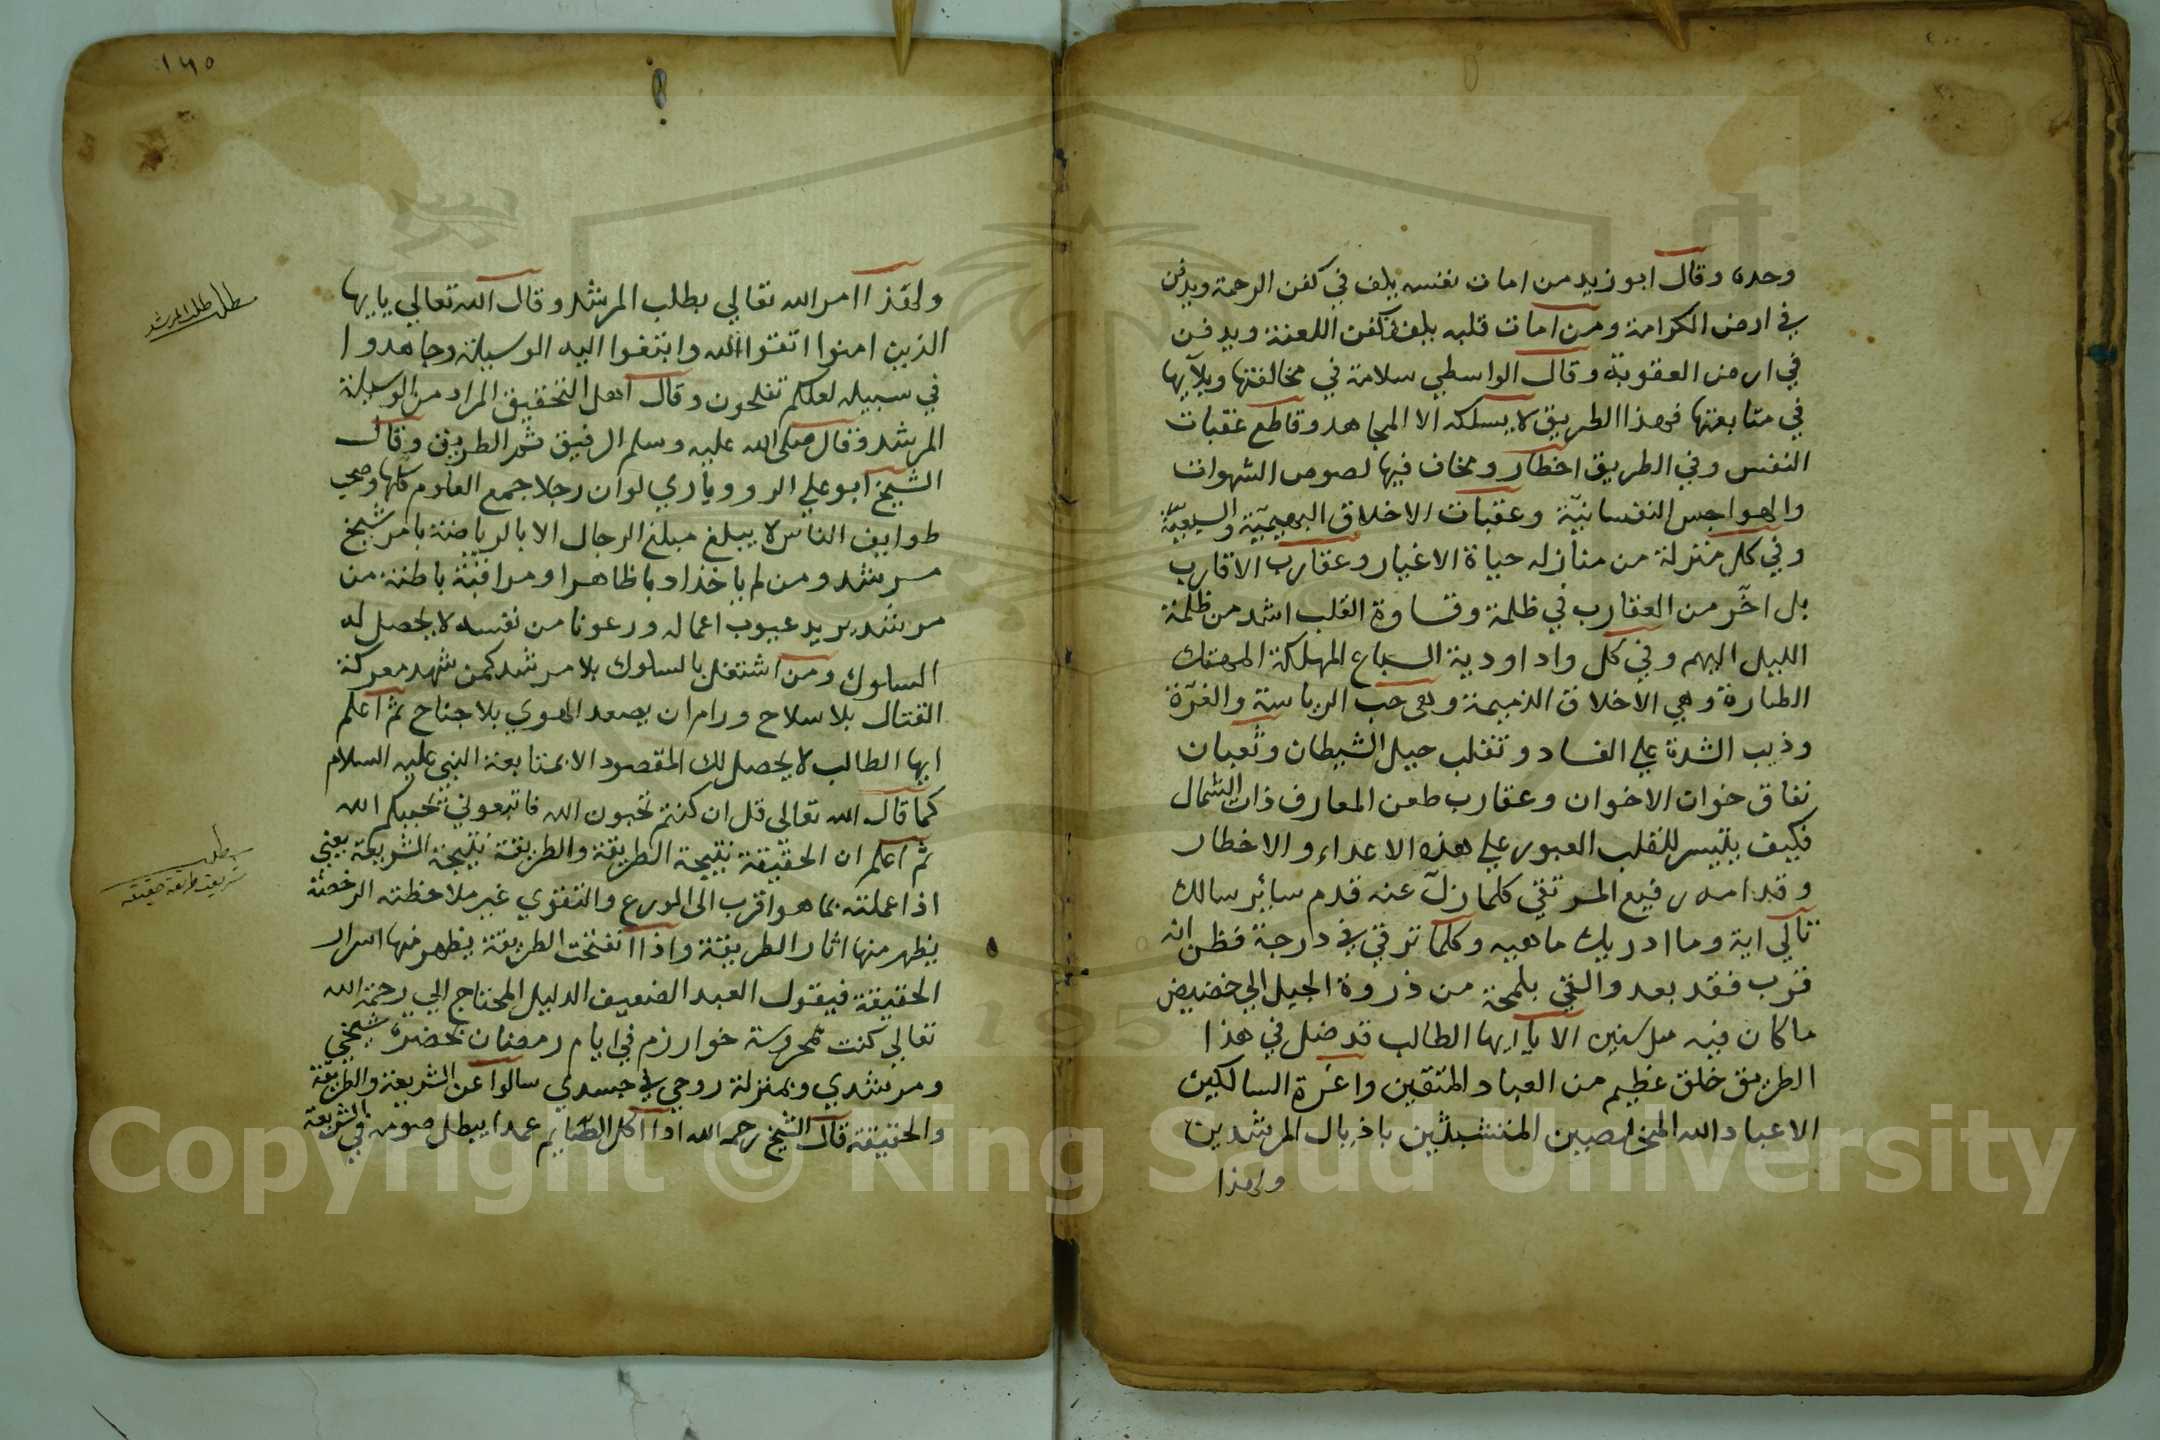 وحده وقال ابو زيد من امات نفسه يلف في كفن الرحمة ويدفن
في ارض الكرامة ومن امات قلبه يلف في كفن اللعنة ويدفن
في ارض العقوبة وقال الواسطي سلامة في مخالفتها وبلآيها
في متابعتها فهذا الطريق لا يسلكه الا المجاهد وقاطع عقبات
النفس وفي الطريق اخطار ومخاف فيها لصوص الشهوات
والهواجس النفسانيّة وعقبات الاخلاق البهيميّة والسبعيّة
وفي كل منزلة من منازله حياة الاغيار وعقارب الاقارب
بل اخّر من العقارب في ظلمة وقساوة القلب اشد من ظلمة
الليل البهم وفي كل واد اودية السباع المهلكة
وهي الاخلاق الذميمة وهي حب الرياسة والغرّة
وذيب الشدة علي الفساد وتغلب حيل الشيطان وثعبان
نفاق خوان الاخوان وعقارب طعن المعارف ذات الشمال
فكيف يتيسر للقلب العبور علي هذه الاعداء والاخطار
رفيع المرتقي كلما زلّ عنه قدم سائر سالك
اية وما ادريك ماهيه وكلما ترقي في درجة فظن انه
قرب فقد بعد والقي بلمحة من ذروة الجبل الي حضيض
ما كان فيه الا يا ايها الطالب قد ضل في هذا
الطريق خلق عظيم من العباد المتقين واغرة السالكين
الا عباد الله المخلصين المتشبثين باذيال المرشدين
ولهذا
١٤٥
ولهذا امر الله تعالي بطلب المرشد وقال الله تعالي يا يها
الذين امنوا اتقوا الله وابتغوا اليه الوسيلة وجاهدوا
في سبيله لعلكم تفلحون وقال اهل التحقيق المراد من الوسيلة
المرشد وقال صلى الله عليه وسلم الرفيق ثم الطريق وقال
الشيخ ابو علي الروو ياري لو ان رجلا جمع العلوم كلها وصحب
طوايف الناس لا يبلغ مبلغ الرجال الا بالرياضة بامر شيخ
مرشد ومن لم ياخذ ادبا ظاهرا ومراقبة باطنة من
مرشد يريد عيوب اعماله ورعونا من نفسه لا يحصل له
السلوك ومن اشتغل بالسلوك بلا مرشد كمن شهد معركة
القتال بلا سلاح ورام ان يصعد الهوي بلا جناح ثم اعلم
ايها الطالب لا يحصل لك المقصود الا بمتابعة النبي عليه السلام
كما قال الله تعالى قل ان كنتم تحبون الله فاتبعوني يحببكم الله
ثم اعلم ان الحقيقة نتيجة الطريقة والطريقة نتيجة الشريعة يعني
اذا عملته بما هو اقرب الى الورع والتقوي غير ملاحظته الرخصة
يظهر منها اثار الطريقة واذا انفتحت الطريقة يظهر منها اسرار
الحقيقة فيقول العبد الضعيف الدليل المحتاج الي رحمة الله
تعالي كنت محروسة خوارزم في ايام رمضان بحضرة شيخي
ومرشدي وبمنزلة روحي في جسدي سالوا عن الشريعة والطريقة
والحقيقة قال الشيخ رحمه الله اذا اكل الصّايم عمدا يبطل صومه في الشريعة
مطلب طلب المرشد
مطلب
شريعت طريقة حقيقة
Copyright © King Saud University
195